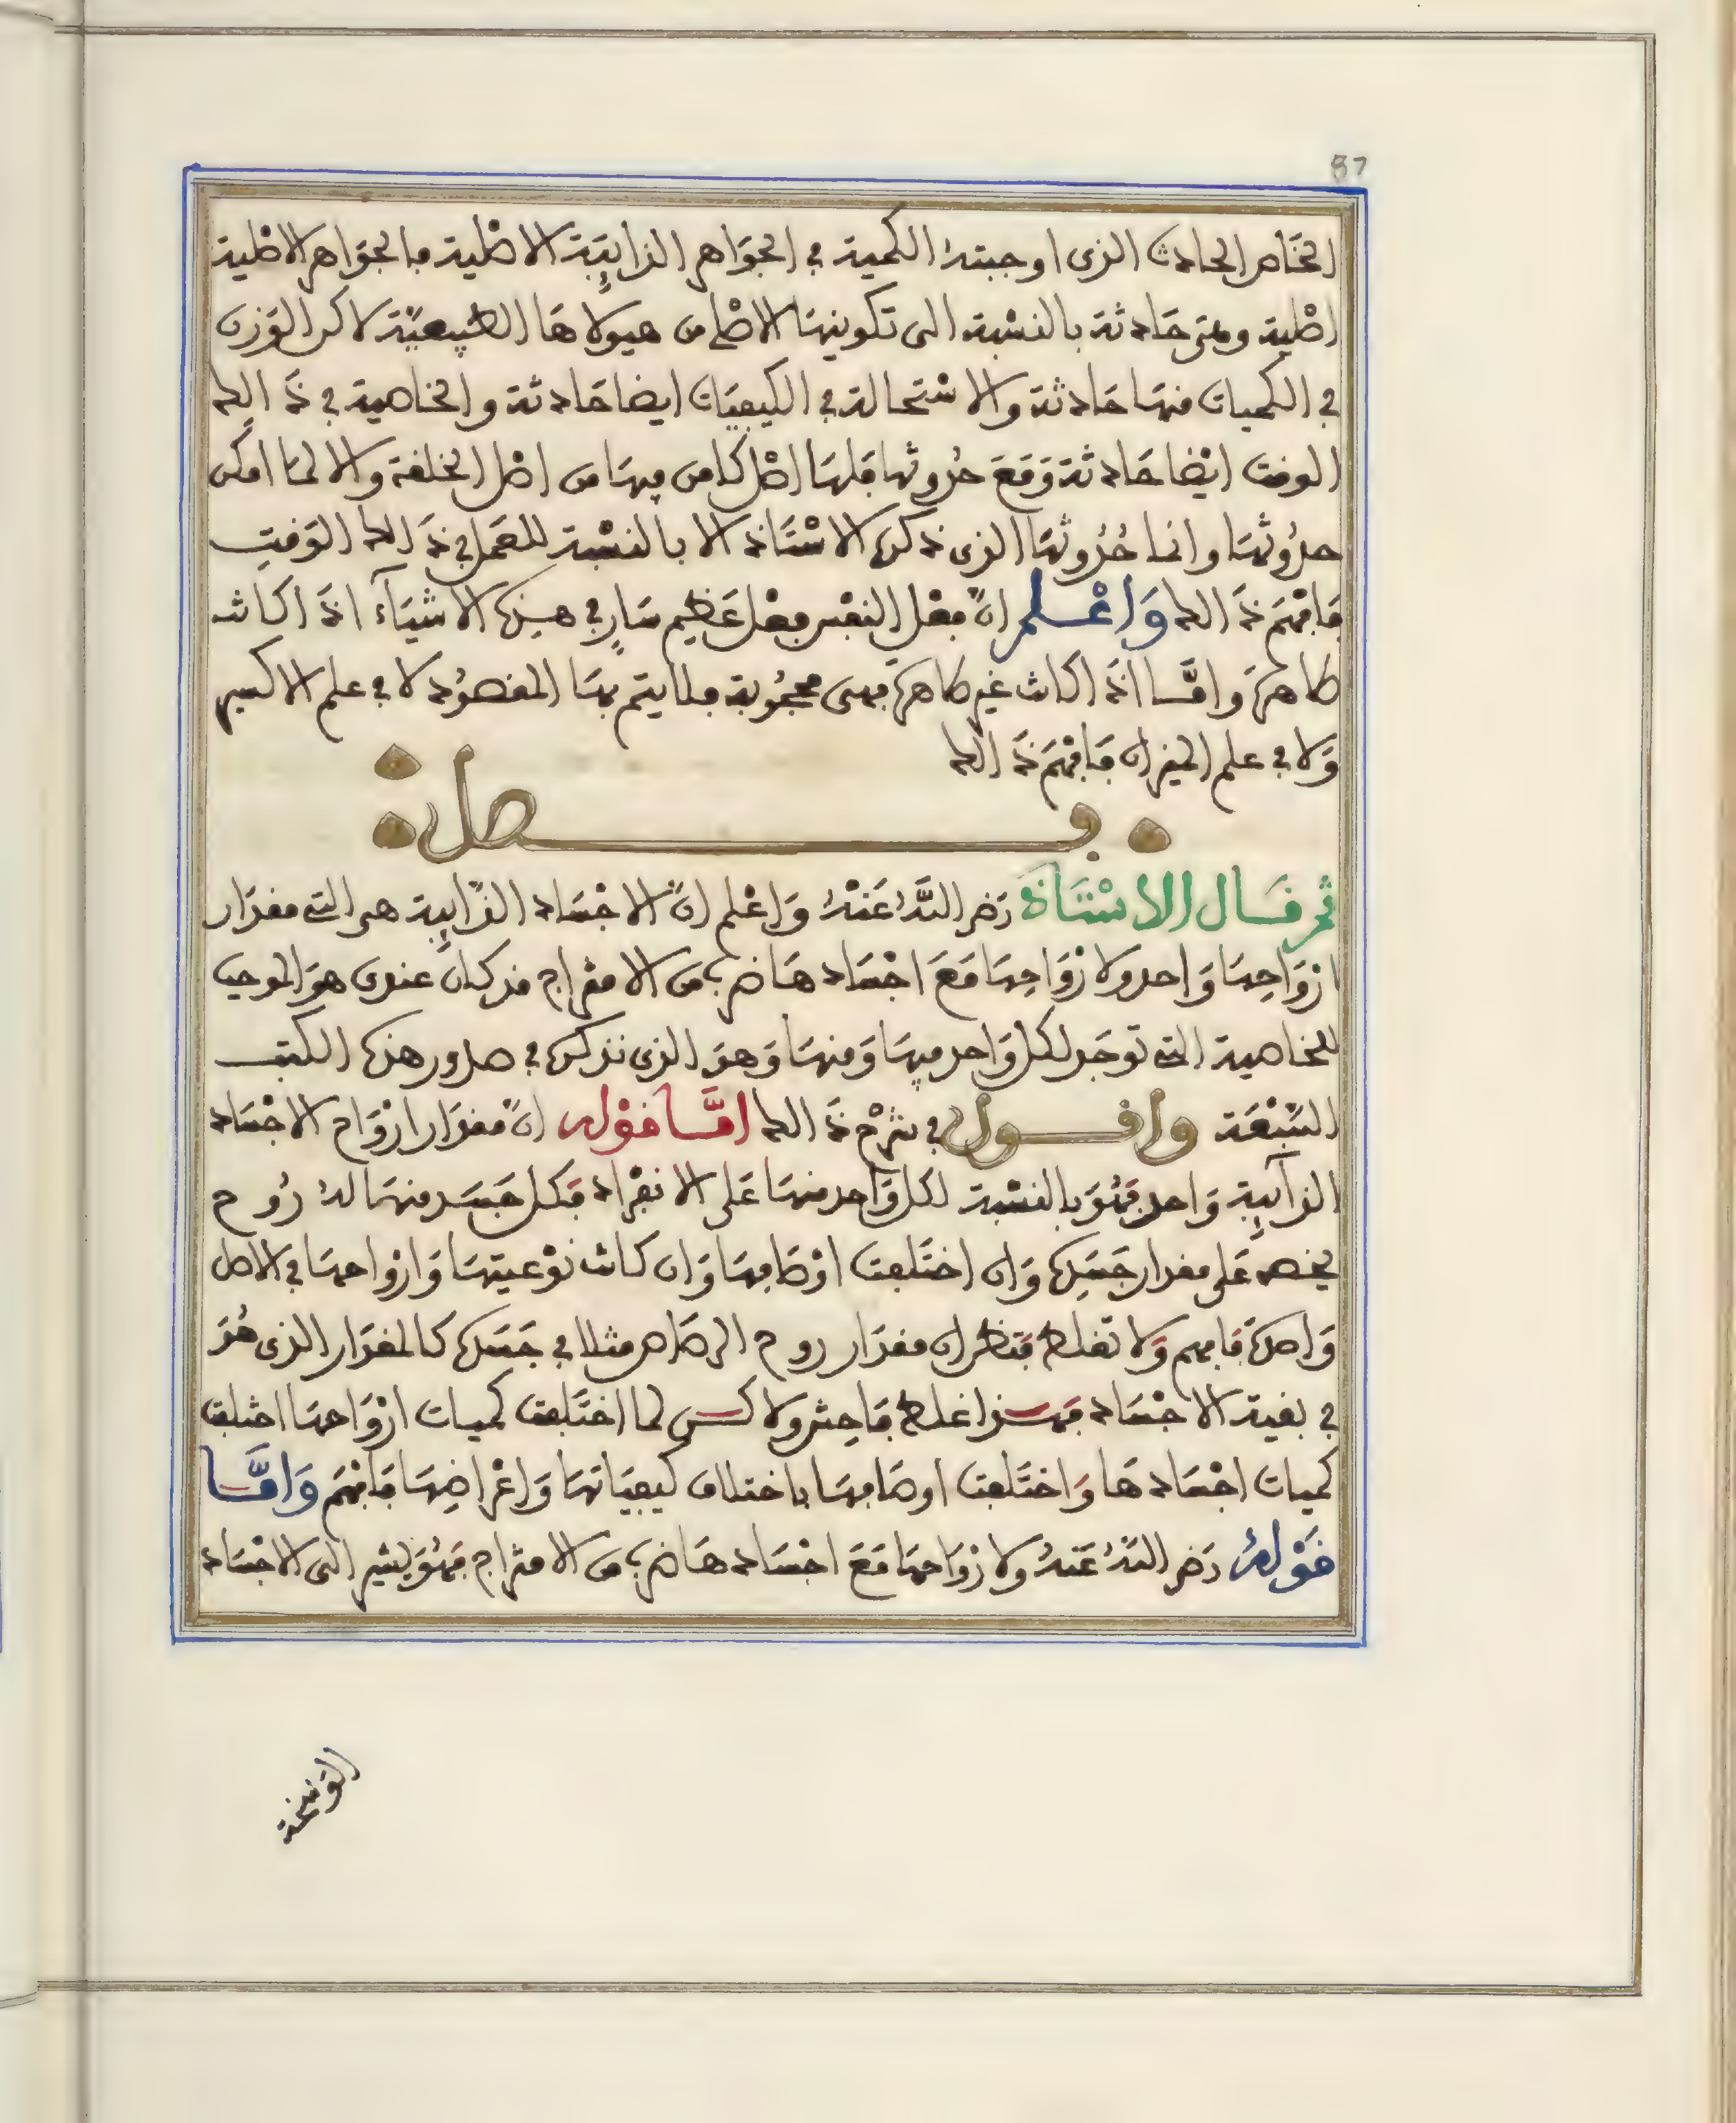 87
الخاص الحادث الذى اوجبته الكمية في الجَوَاهر الذايِبَة الاصْلية فالجوَاهر الاصْلية
اصْلية وهى حَادثة بالنسْبة الى تكوينهَا الاصْلى من هيولاهَا الطبيعيّة لاكن الوَزن
في الكميات منهَا حَادثة والاسْتحالة في الكيفيَات ايضا حَادثة والخاصية في ذَالك
الوقت ايْضا حَادثة وَمَعَ حُدوثها فلهَا اصْل كامن فيهَا من اصْل الخلقة والا لمَا امكن
حدُوثهَا وانما حُدُوثهَا الذى ذكره الاسْتَاذ الا بالنسْبة للعَمل في ذَالك الوَقت
فَافهَم ذَالك وَاعْلم انّ فعْل النفْس فعْل عَظيم سَارٍ في هذه الاشيَآء اذَا كانت
ظاهرَة وامَّا اذَا كانت غير ظاهرَة فهى محجُوبة فلا يتم بهَا المقصُود لا في علم الاكسير
وَلا في علم الميزان فَافهَم ذَالك
فصل
ثم قَال الاسْتَاذ رَضي اللَّهُ عَنْهُ وَاعْلم انّ الاجْسَاد الذَايِبة هى التى مقدَار
ارْوَاحِهَا وَاحد ولارْوَاحِهَا مَعَ اجْسَادهَا ضرب من الامتزاج قد كانَ عندى هوَ الموجب
للخاصية التى توجَد لكل وَاحد فيهَا وَمنهَا وَهوَ الذى نذكره في صدور هذه الكتب
السَّبْعَة وافول في شرْح ذَالك امَّا قوْله انّ مقدَار ارْوَاح الاجْسَاد
الذآيِبة وَاحد فهُوَ بالنسْبة لكل وَاحد منهَا عَلى الانفرَاد فَكل جَسَد منهَا لهُ رُوح
يخصه عَلى مقدار جَسَدِه وَان اختَلفت اوْصَافهَا وَان كانت نوْعيتهَا وَارْواحهَا في الاصل
وَاحدَة فَافهم وَلا تغلط فتظن ان مقدَار روح الرصَاص مثلا في جَسَده كالمقدَار الذى هُوَ
في بقية الاجْسَاد فهَذا غلط فَاحِش ولاكن لما اختَلفت كميات ارْوَاحهَا اختلفت
كميات اجْسَادهَا وَاختَلفت اوصَافهَا باختلاف كيفيَاتهَا وَاعْرَاضِهَا فَافهَم وَامَّا
قَوْلهُ رَضي اللَّهُ عَنهُ ولارْوَاحهَا مَعَ اجْسَادهَا ضرب من الامتزاج فهُوَ يشير الى الاجْسَاد
الوَسِخة